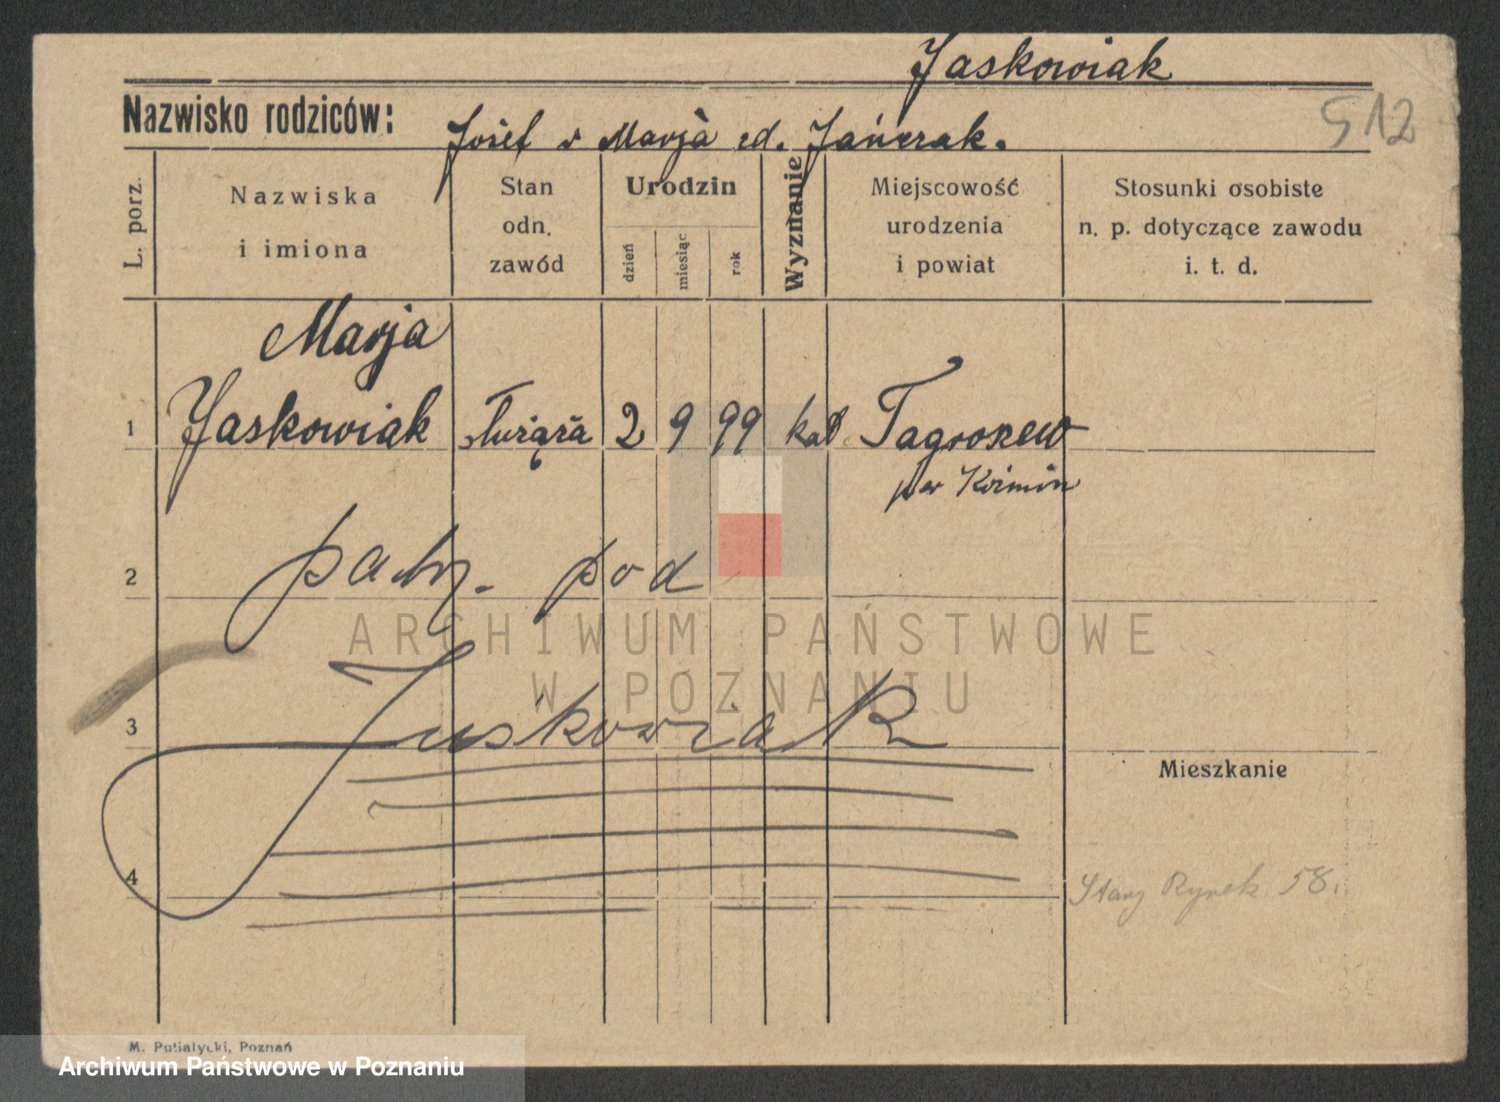 Jaskowiak
512
Nazwisko rodziców:
Josef i Marja ed. Jańczak.
L. porz.
Nazwiska
i imiona
Stan
odn.
zawód
Urodzin
dzień
miesiąc
rok
Wyznanie
Miejscowość
urodzenia
i powiat
Stosunki osobiste
n. p. dotyczące zawodu
i. t. d.
Marja
1 Jaskowiak służąca 2 9 99 kat.
pow Koźmin
2 patrz. pod
ARCHIWUM PAŃSTWOWE
W POZNANIU
3 Juskowiak
Mieszkanie
4
Stary Rynek 58.
M. Putiatycki, Poznań
Archiwum Państwowe w Poznaniu